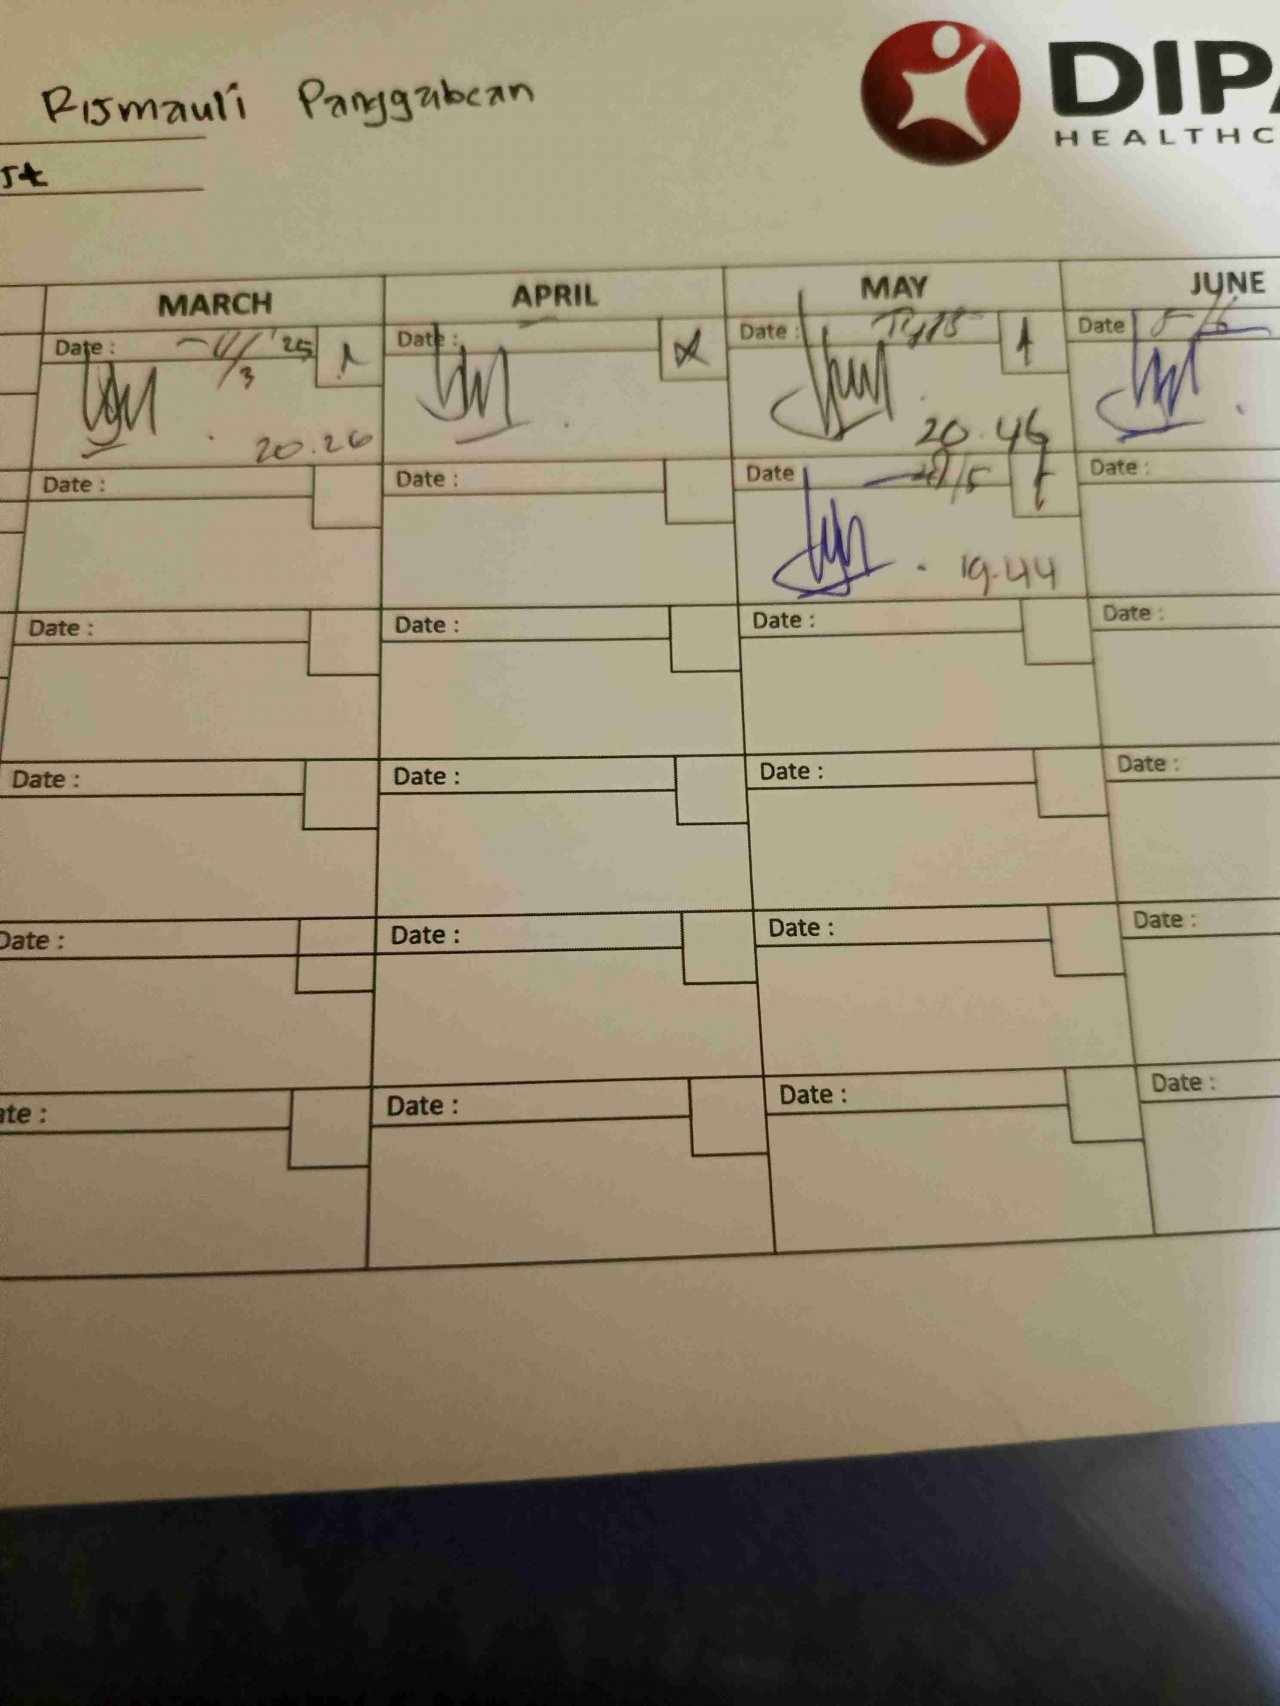 Rismauli Panggabean
DIPA
HEALTHC
MARCH APRIL MAY JUNE
Date : /3 '25 Date : Date : Date
20.26 20.46
Date : Date : Date /5 Date :
19.44
Date : Date : Date : Date :
Date : Date : Date : Date :
Date : Date : Date : Date :
ate : Date : Date : Date :